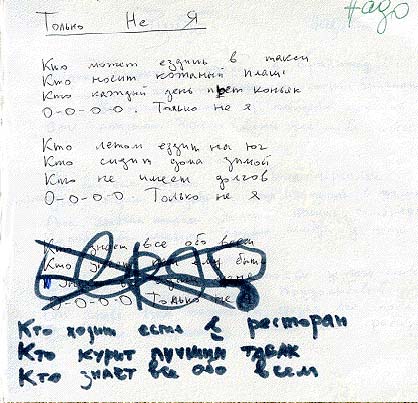 Надо
Только Не Я
Кто может ездить в такси
Кто носит кожаный плащ
Кто каждый день пьет коньяк
О-О-О-О. Только не я
Кто летом ездит на юг
Кто сидит дома зимой
Кто не имеет долгов
О-О-О-О Только не я
Кто знает все обо всем
Кто быть
О-О-О-О Только не я
Кто ходит есть в ресторан
Кто курит лучший табак
Кто знает все обо всем